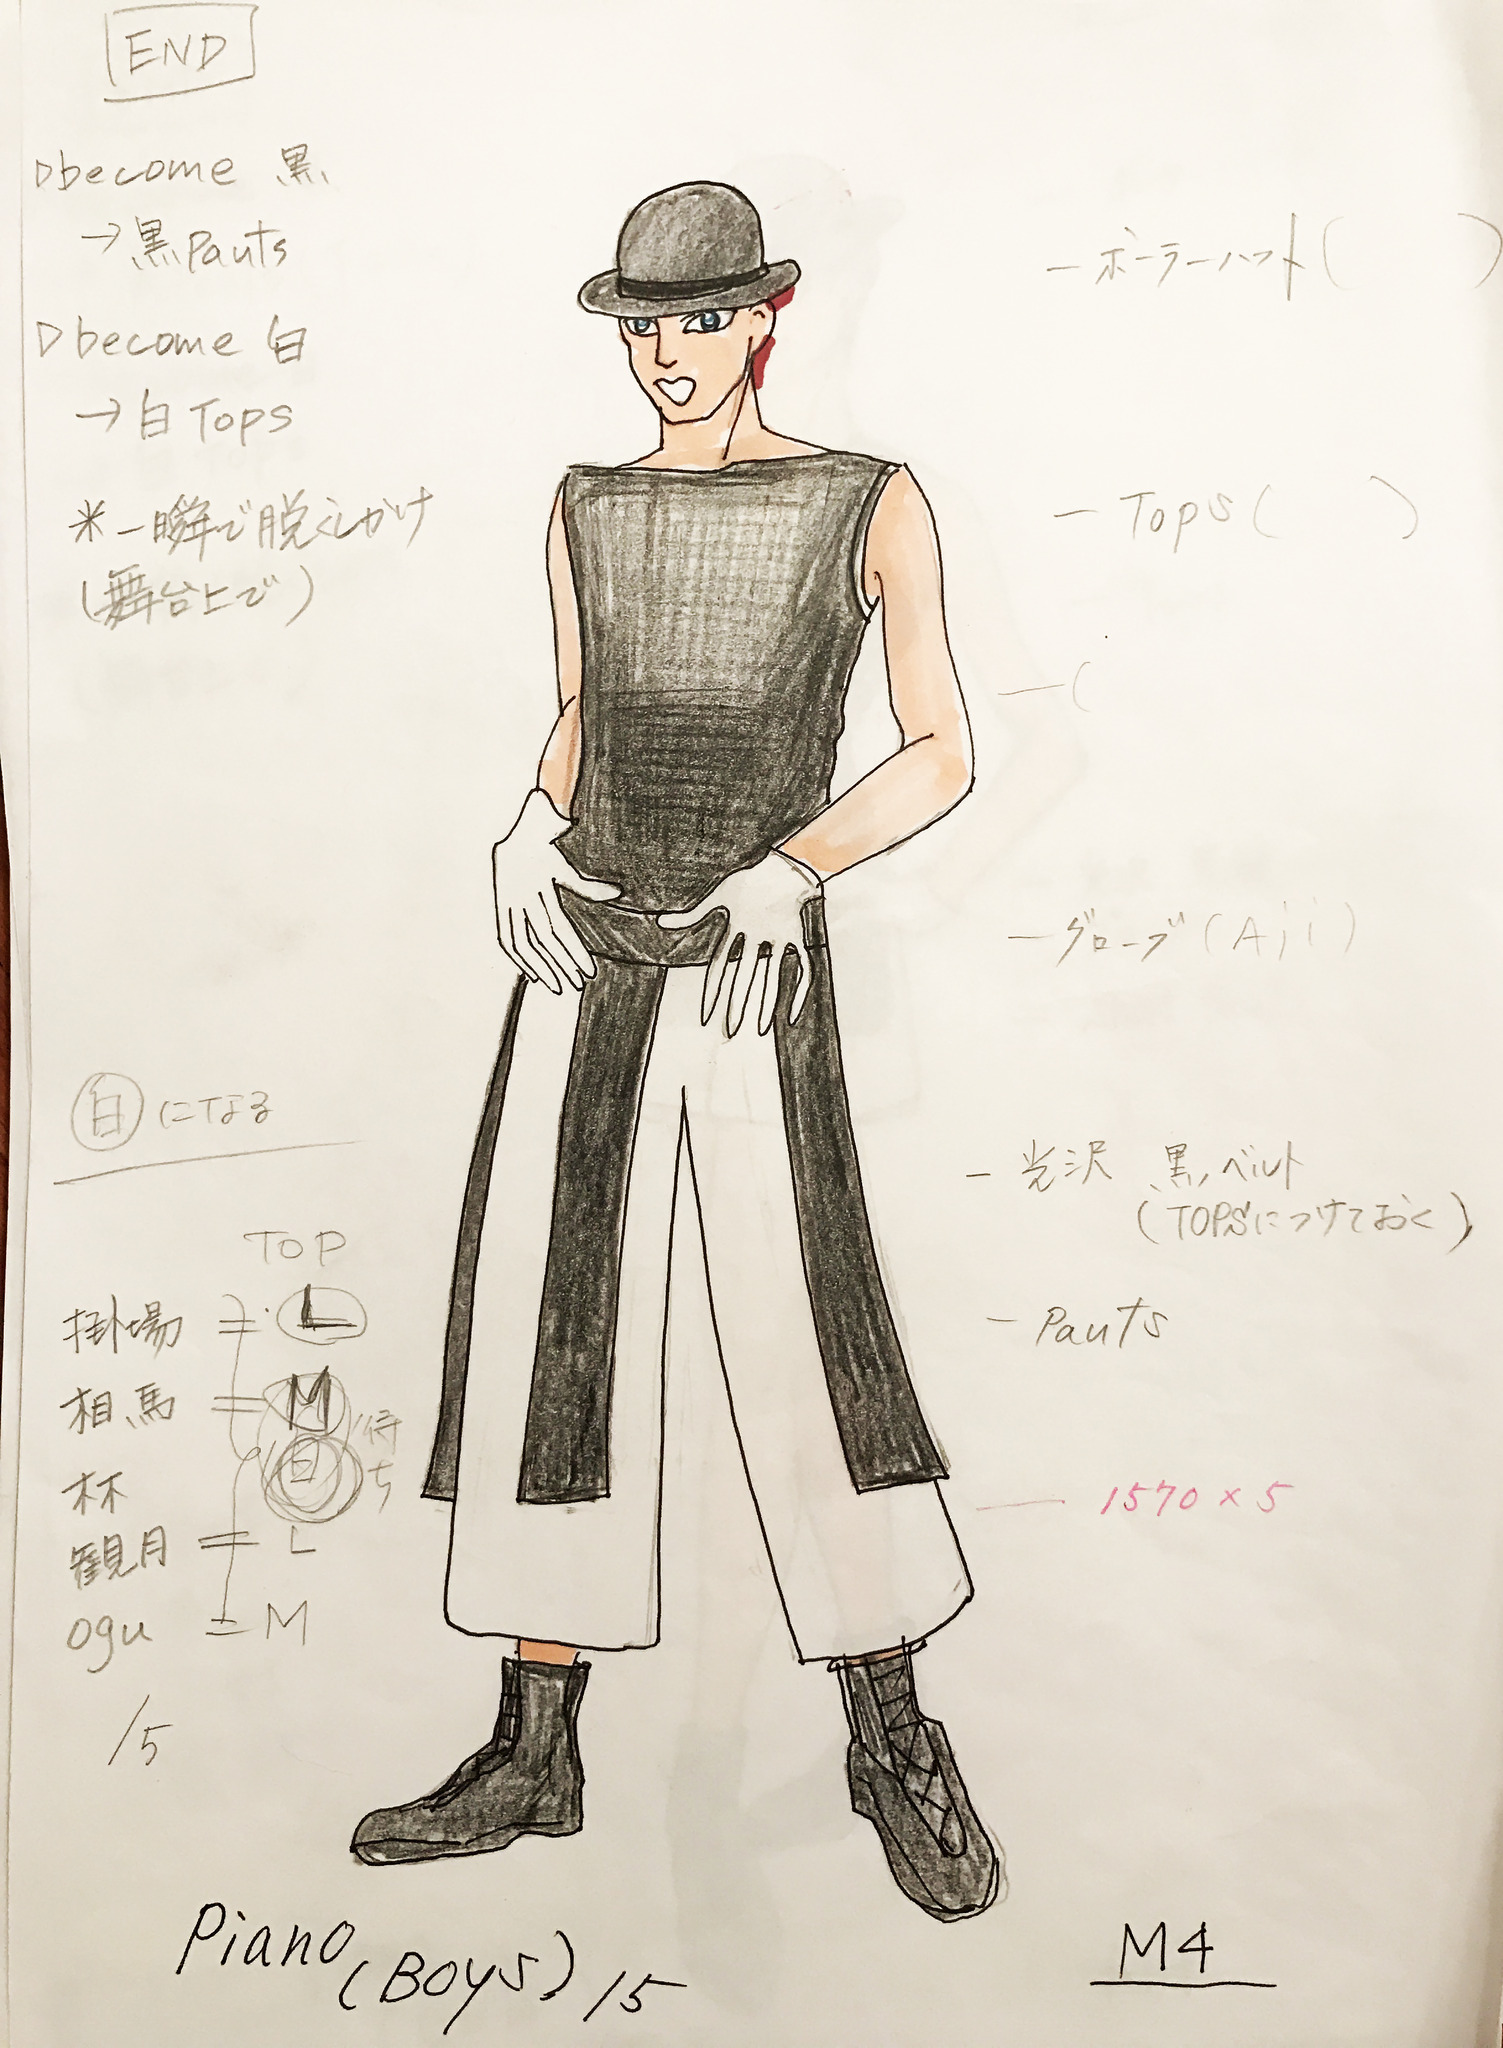 END
▷become 黒
→黒Pants
▷become 白
→白Tops
※一瞬で脱ぐしかけ
(舞台上で)
ーボーラーハット(　　　)
ーTops(　　　)
ー(
ーグローブ(Aji)
ー光沢 黒ベルト
(TOPSにつけておく)
ーPants
ー1570×5
白になる
TOP
掛場 = L
相馬 = M
林 白 待ち
観月 = L
ogu = M
/5
Piano(BOYS)/5
M4